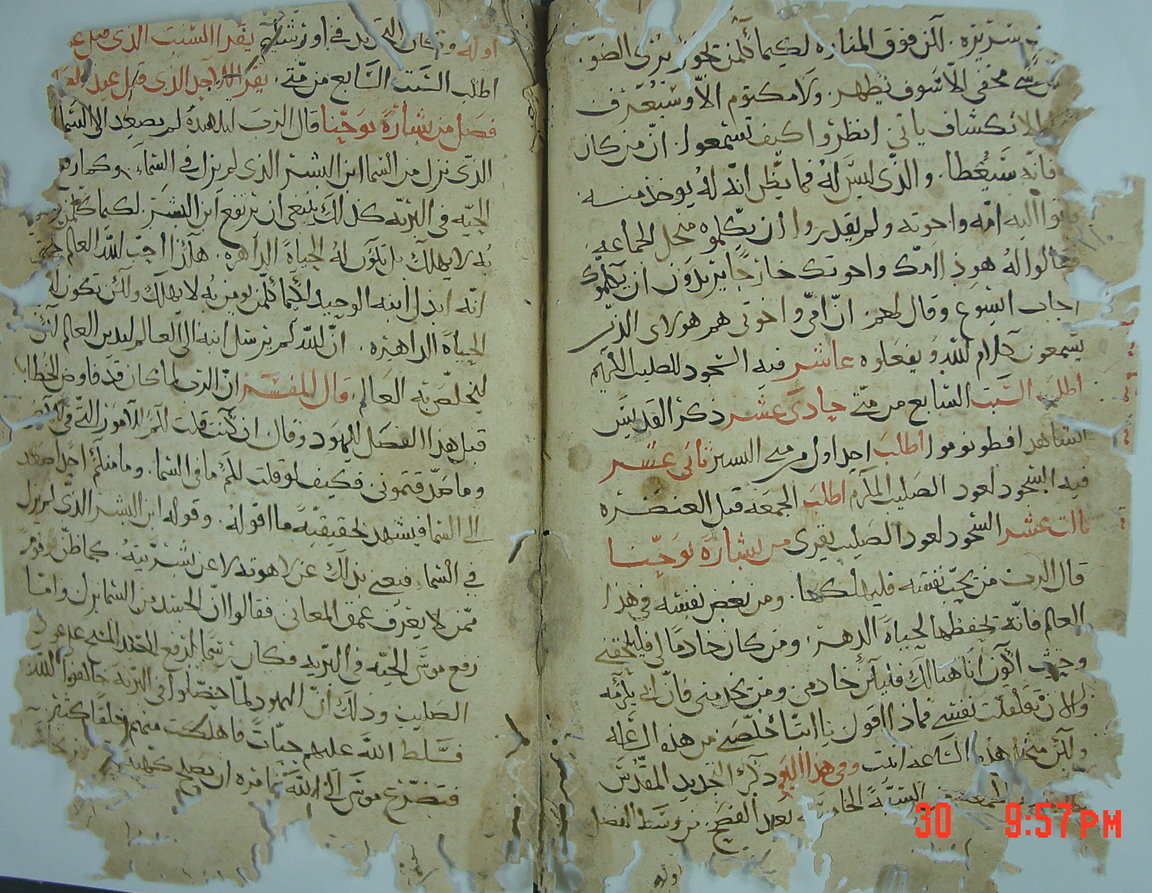 سريره. لكن فوق المناره لكيما كلمن يجوز يرى الضو.
شي مخفي الا سوف يظهر. ولا مكتوم الا وسيعرف
للانكشاف ياتي انظروا كيف تسمعوا. ان من كان
فانه سيعطا. والذي ليس له فما يظن انه له يوخذ منه
فاتوا اليه امه واخوته ولم يقدروا ان يكلموه من اجل الجماعه
قالوا له هوذا امك واخوتك خارجا يريدون ان يكلموك
اجاب ايسوع وقال لهم ان امي واخوتي هم هولاى الذين
يسمعون كلام الله ويفعلوه عاشر فيه السجود للصليب الكريم
اطلب السبت السابع من متى حادي عشر ذكر القديس
الشاهد افطونومو اطلب احد اول من السير ثاني عشر
فيه السجود لعود الصليب المكرم اطلب الجمعه قبل العنصره
ثالث عشر السجود لعود الصليب يقرى من بشارة يوحنا
قال الرب من يحب نفسه فليهلكها. ومن بغض نفسه في هذا
العالم فانه يحفظها لحياة الدهر. ومن كان خادما لي فليلحقني
وحيث اكون انا هنالك فليكن خادمي ومن يخدمني فان ابي يكرمه
والان تقلقلت نفسي فماذا اقول يا ابتا خلصني من هذه الساعه
ولكن من اجل هذه الساعه اتيت وفي هذا اليوم ذكر التجديد المقدس
السنة الخامسة بعد الفصح. من وسط الفصل
اوله
اوله يقرا السبت الذي قبل
اطلب السبت السابع من متى. يقرا الاحد الذي قبل عيد
فصل من بشارة يوحنا قال الرب لتلاميذه لم يصعد الى السما
الذي نزل من السما ابن البشر الذي لم يزل في السما. وكما رفع
الحيه في البريه كذلك ينبغي ان يرتفع ابن البشر. لكيما كلمن يومن
به لا يهلك بل تكون له الحياة الداهره. هكذا احب الله العالم حتى
انه ابذل ابنه الوحيد لكيما كلمن يومن به لا يهلك ولكن تكون له
الحياة الداهره. ان الله لم يرسل ابنه الى العالم ليدين العالم لكن
ليخلص به العالم. قال المفسر ان الرب لما كان قد فاوض الخطاب
قبل هذا الفصل لليهود وقال ان كنت قلت لكم الامور التي في الارض
وما صدقتموني فكيف لو قلت لكم ما في السما. وما منكم احد صعد
الى السما فيشهد لحقيقية ما اقوله. وقوله ابن البشر الذي لم يزل
في السما. فيعني بذلك عن لاهوته لا عن بشريته. كما ظن قوم
ممن لا يعرف عمق المعاني فقالوا ان الجسد من السما نزل واما
رفع موسى الحيه في البريه وكان رسما لرفع المسيح على عود
الصليب وذلك ان اليهود لما حصلوا في البريه خالفوا الله
فسلط الله عليهم حيات فاهلكت منهم خلقا كثير
فتضرع موسى الى الله فامره ان يصلح كهيه
30 9:57PM